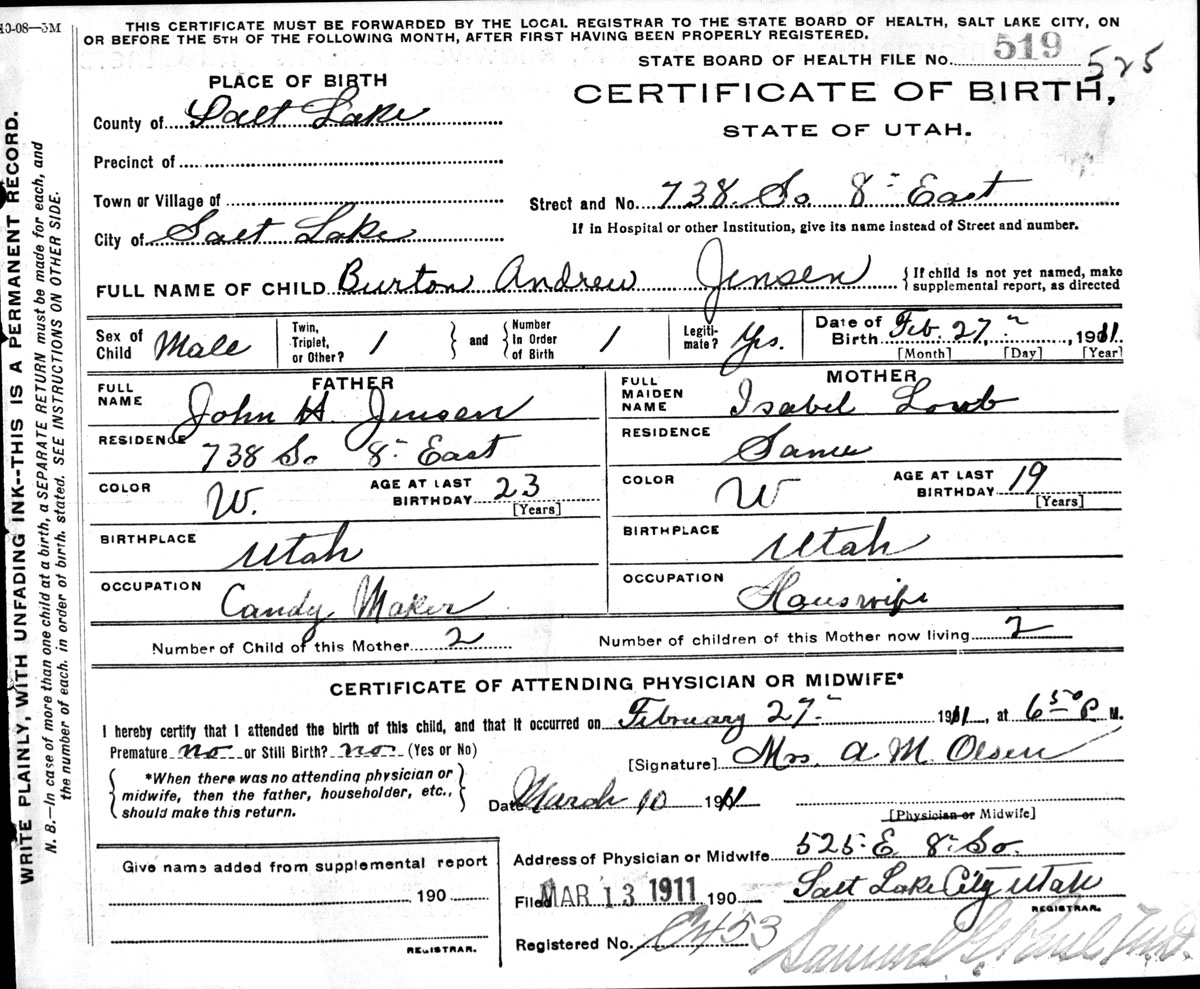 10-08—5M
THIS CERTIFICATE MUST BE FORWARDED BY THE LOCAL REGISTRAR TO THE STATE BOARD OF HEALTH, SALT LAKE CITY, ON
OR BEFORE THE 5TH OF THE FOLLOWING MONTH, AFTER FIRST HAVING BEEN PROPERLY REGISTERED.
STATE BOARD OF HEALTH FILE NO. 519
525
PLACE OF BIRTH
CERTIFICATE OF BIRTH,
STATE OF UTAH.
County of Salt Lake
Precinct of
Town or Village of
Street and No. 738 So 8" East
City of Salt Lake
If in Hospital or other Institution, give its name instead of Street and number.
FULL NAME OF CHILD Burton Andrew Jensen {If child is not yet named, make
supplemental report, as directed
Sex of Child Male
Twin, Triplet, or Other? 1 } and { Number In Order of Birth 1
Legiti-mate? Yes.
Date of Birth Feb. 27", 1911
[Month] [Day] [Year]
FATHER
FULL NAME John H. Jensen
RESIDENCE 738 So 8" East
COLOR W. AGE AT LAST BIRTHDAY 23 [Years]
BIRTHPLACE Utah
OCCUPATION Candy Maker
MOTHER
FULL MAIDEN NAME Isabel
RESIDENCE Same
COLOR W AGE AT LAST BIRTHDAY 19 [Years]
BIRTHPLACE Utah
OCCUPATION Houswife
Number of Child of this Mother 2
Number of children of this Mother now living 2
CERTIFICATE OF ATTENDING PHYSICIAN OR MIDWIFE*
I hereby certify that I attended the birth of this child, and that it occurred on February 27" 1911, at 6 50 P M.
Premature no or Still Birth? no. (Yes or No)
[Signature] Mrs. A. M. Olsen
{*When there was no attending physician or
midwife, then the father, householder, etc.,
should make this return.}
Date March 10 1911
[Physician or Midwife]
Give name added from supplemental report
190
REGISTRAR.
Address of Physician or Midwife 525 E 8" So.
Salt Lake City Utah
Filed MAR 13 1911, 190
REGISTRAR.
Registered No. 453
WRITE PLAINLY, WITH UNFADING INK--THIS IS A PERMANENT RECORD.
N. B.—In case of more than one child at a birth, a SEPARATE RETURN must be made for each, and
the number of each, in order of birth, stated. SEE INSTRUCTIONS ON OTHER SIDE.